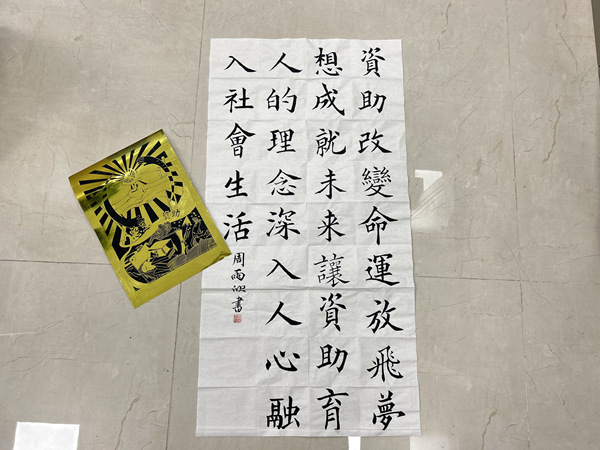 資助改變命運放飛夢
想成就未来讓資助育
人的理念深入人心融
入社會生活
周雨
書
資助